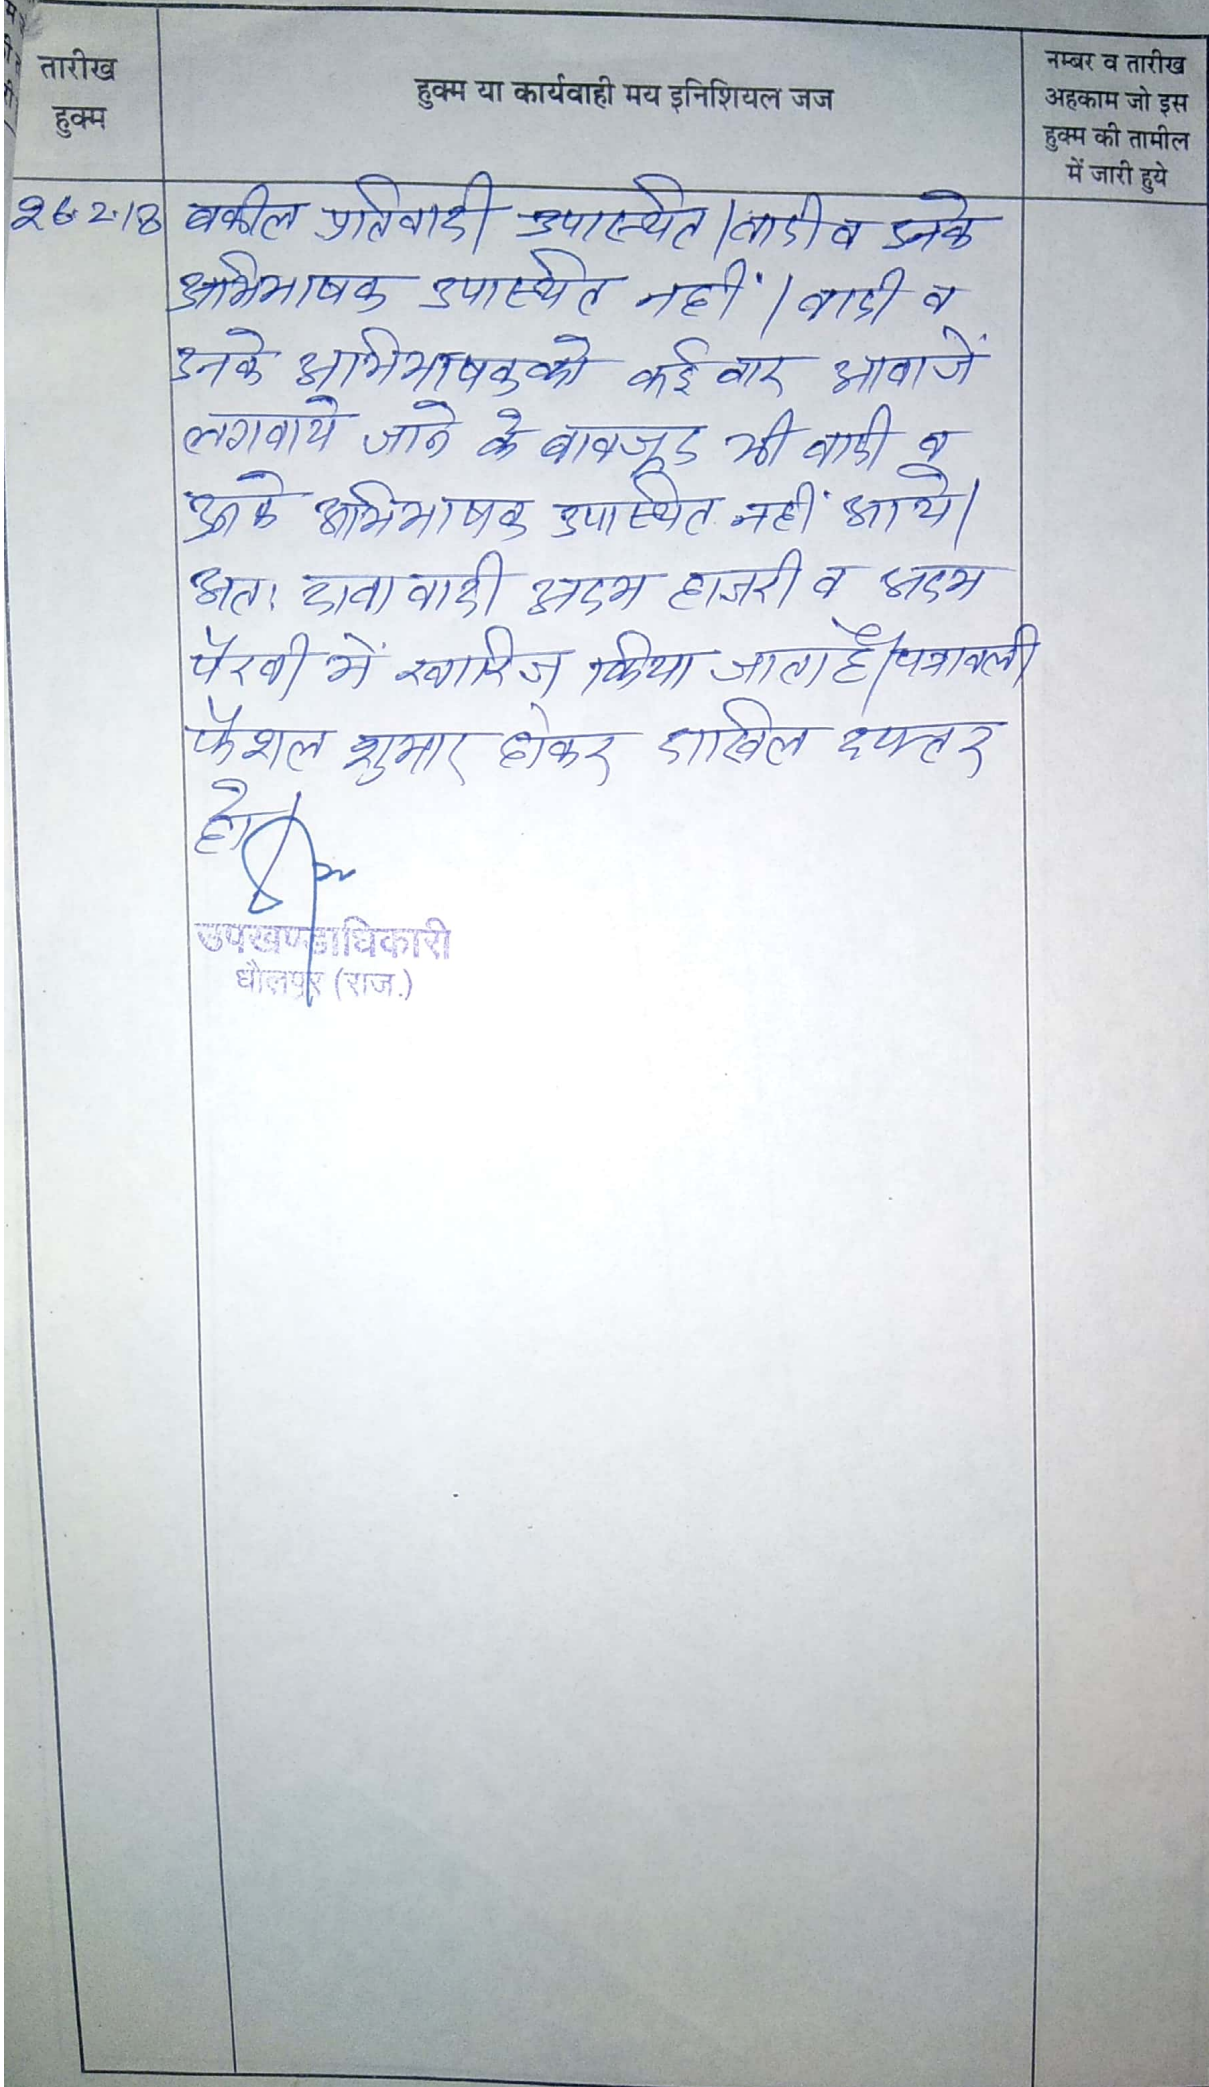 तारीख
हुक्म
हुक्म या कार्यवाही मय इनिशियल जज
नम्बर व तारीख
अहकाम जो इस
हुक्म की तामील
में जारी हुये
26.2.18
वकील प्रतिवादी उपस्थित। वादी व उनके
अभिभाषक उपस्थित नहीं। वादी व
उनके अभिभाषक को कई वार आवाजें
लगवाये जाने के वावजूद भी वादी व
उनके अभिभाषक उपस्थित नहीं आये।
अतः दावा वादी अदम हाजरी व अदम
पैरवी में खारिज किया जाता है। पत्रावली
फैशल शुमार होकर दाखिल दफ्तर
हो
उपखण्डाधिकारी
धौलपुर (राज.)